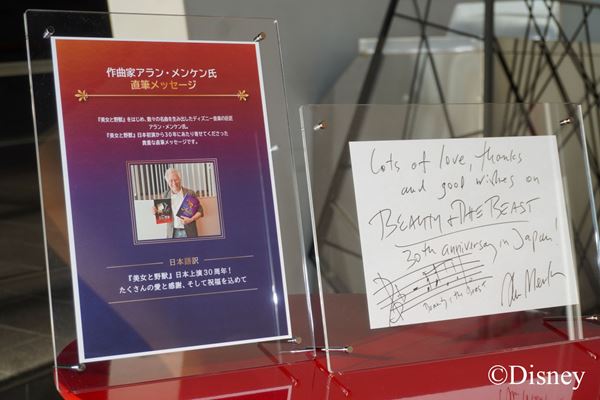 作曲家アラン・メンケン氏
直筆メッセージ
『美女と野獣』をはじめ、数々の名曲を生み出したディズニー音楽の巨匠
アラン・メンケン氏。
『美女と野獣』日本初演から30年にあたり寄せてくださった
貴重な直筆メッセージです。
日本語訳
『美女と野獣』日本上演30周年！
たくさんの愛と感謝、そして祝福を込めて
Lots of love, thanks
and good wishes on
BEAUTY & THE BEAST
30th anniversary in Japan!
Beauty & the Beast
Alan Menken
©Disney